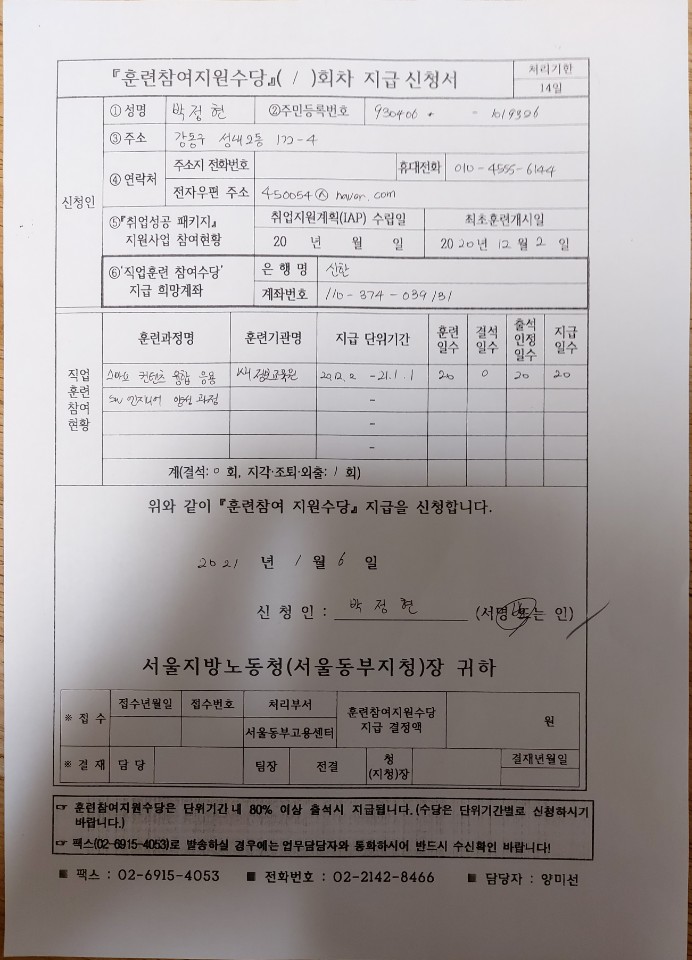 『훈련참여지원수당』( / )회차 지급 신청서
처리기한
14일
신청인
①성명 박정현 ②주민등록번호 930406 - 1019326
③주소 강동구 성내2동 172-4
④연락처 주소지 전화번호 휴대전화 010-4555-6144
전자우편 주소 450054@naver.com
⑤『취업성공 패키지』 지원사업 참여현황
취업지원계획(IAP) 수립일 최초훈련개시일
20 년 월 일 2020년 12월 2일
⑥'직업훈련 참여수당' 지급 희망계좌
은행명 신한
계좌번호 110-374-039131
직업훈련참여현황
훈련과정명 훈련기관명 지급 단위기간 훈련일수 결석일수 출석인정일수 지급일수
컨텐츠 융합 응용 KH정보교육원 20.12.2 -21.1.1 20 0 20 20
SW 엔지니어 양성 과정 -
-
-
계(결석: 0 회, 지각·조퇴·외출: 1 회)
위와 같이 『훈련참여 지원수당』 지급을 신청합니다.
2021 년 1월 6 일
신청인 : 박정현 (서명 또는 인)
서울지방노동청(서울동부지청)장 귀하
※ 접수 접수년월일 접수번호 처리부서 훈련참여지원수당 지급 결정액 원
서울동부고용센터
※ 결재 담당 팀장 전결 청(지청)장 결재년월일
☞ 훈련참여지원수당은 단위기간 내 80% 이상 출석시 지급됩니다.(수당은 단위기간별로 신청하시기
바랍니다.)
☞ 팩스(02-6915-4053)로 발송하실 경우에는 업무담당자와 통화하시어 반드시 수신확인 바랍니다!
■ 팩스 : 02-6915-4053 ■ 전화번호 : 02-2142-8466 ■ 담당자 : 양미선